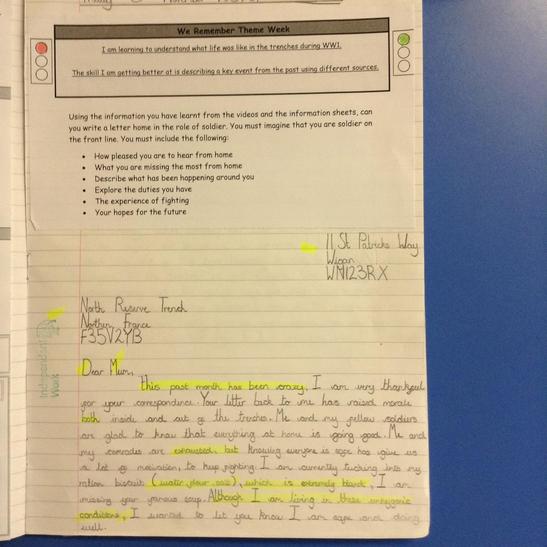 We Remember Theme Week
I am learning to understand what life was like in the trenches during WW1.
The skill I am getting better at is describing a key event from the past using different sources.
Using the information you have learnt from the videos and the information sheets, can
you write a letter home in the role of soldier. You must imagine that you are soldier on
the front line. You must include the following:
• How pleased you are to hear from home
• What you are missing the most from home
• Describe what has been happening around you
• Explore the duties you have
• The experience of fighting
• Your hopes for the future
11 St Patricks Way
Wigan
WN123RX
North Reserve Trench
Northen France
F35V2YB
Independent
Work
Dear Mum,
this past month has been crazy. I am very thankful
for your correspondence. Your letter back to me has raised morale
both inside and out of the trenches. Me and my fellow soldiers
are glad to know that everything at home is going good. Me and
my comrades are exhausted, but knowing everyone is safe has give us
a lot of motivation, to keep fighting. I am currently tucking into my
ration biscuits (water, flour, salt), which is extremely bland, I am
missing your famous soup. Although I am living in these unhygenic
conditions, I wanted to let you know I am safe and doing
well.